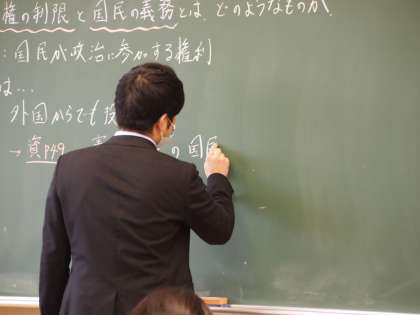 権の制限と国民の義務とは、どのようなものか
:国民が政治に参加する権利
は…
外国からでも投
→資P49
の国民